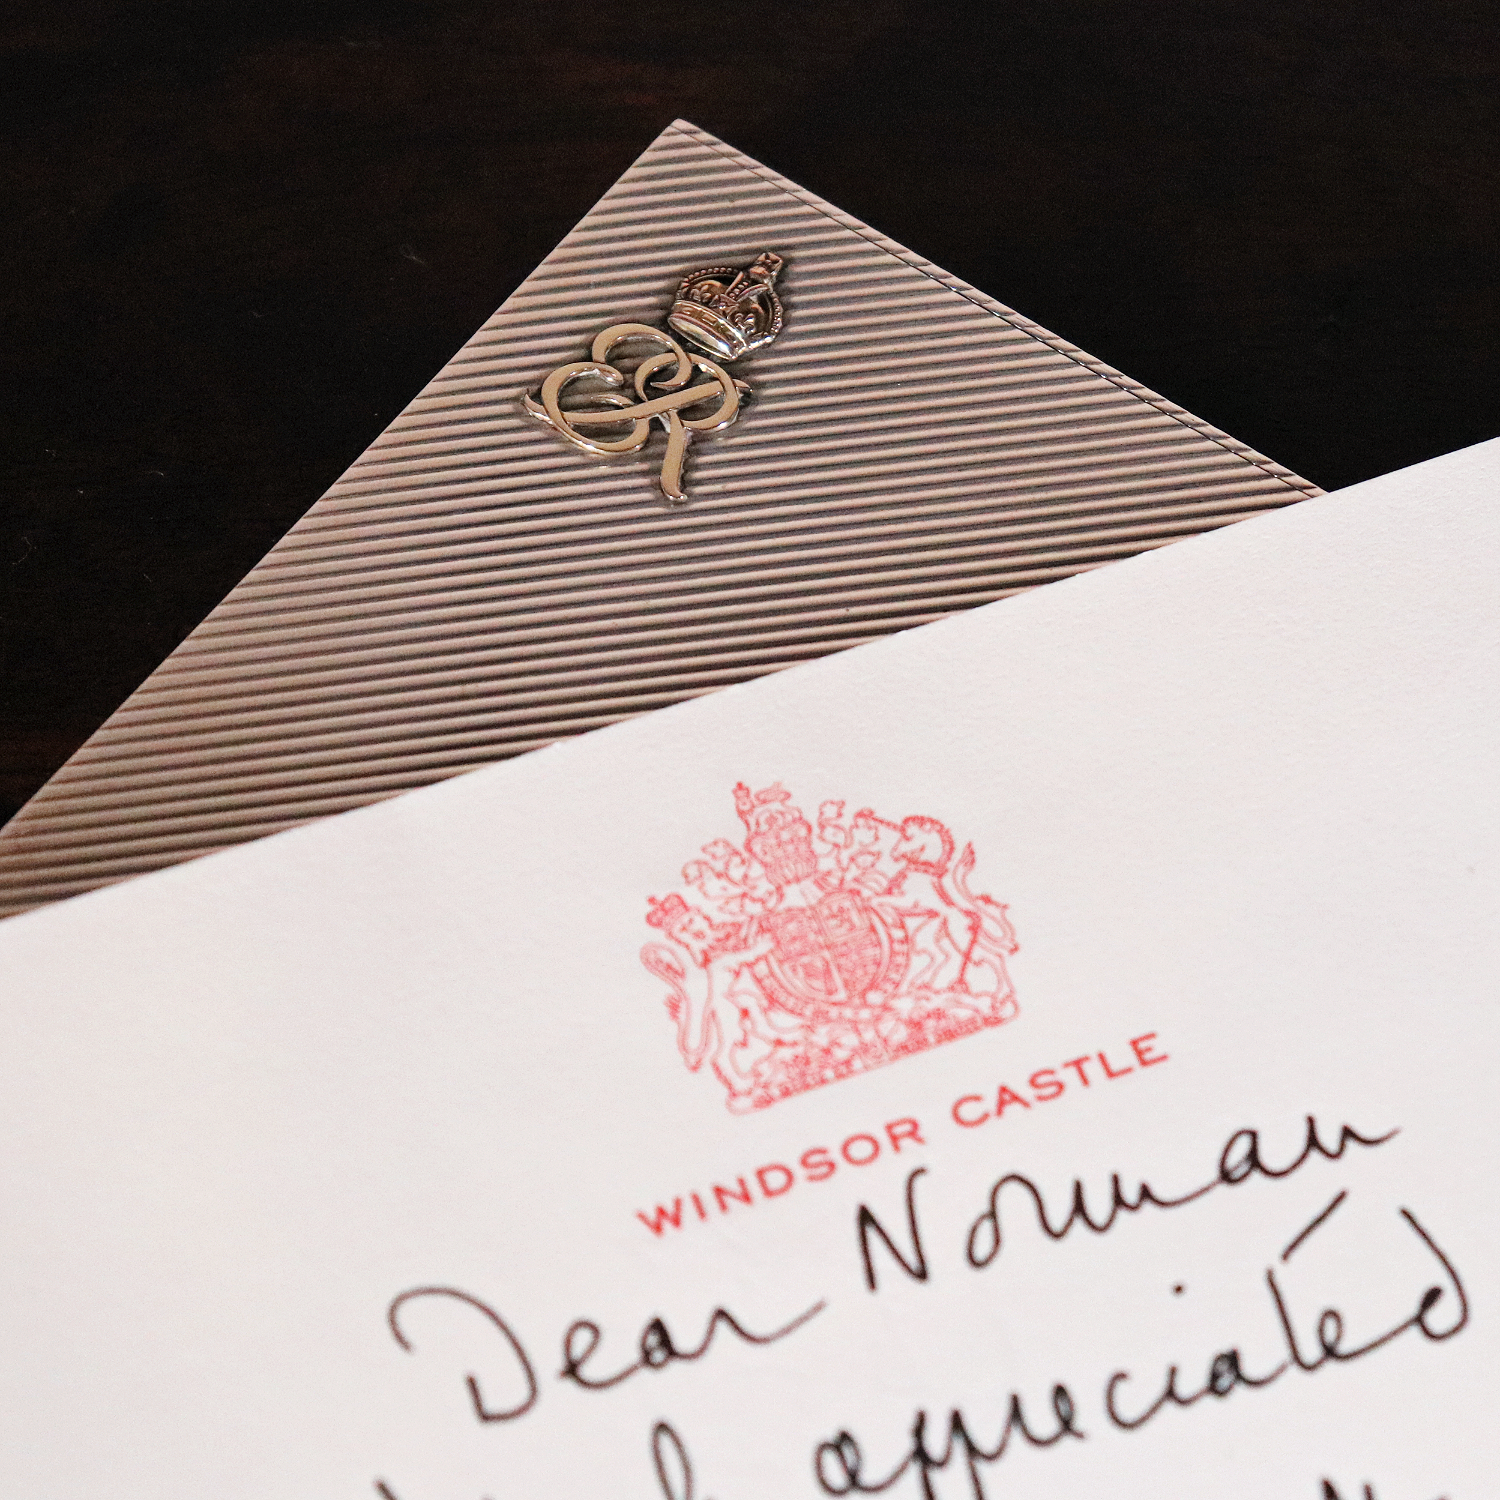 WINDSOR CASTLE
Dear Norman
appreciated